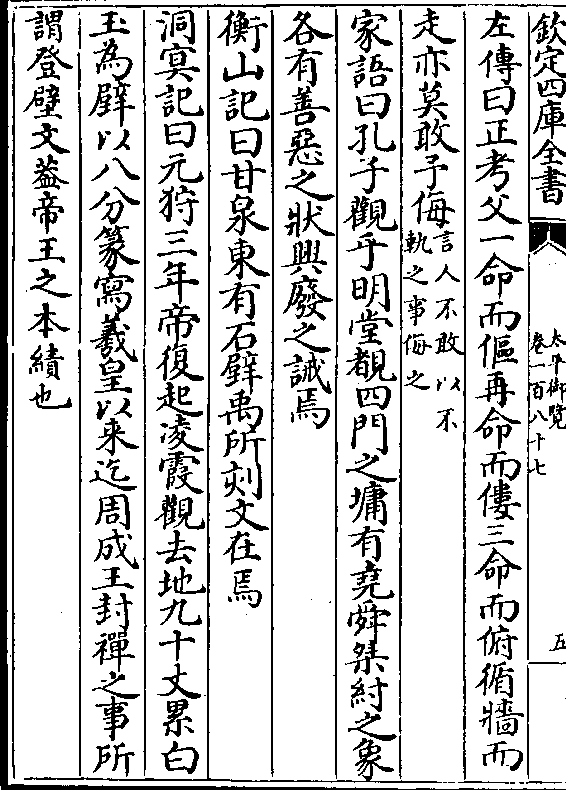 欽定四庫全書
太平御覽
卷一百八十七
五
左傳曰正考父一命而傴再命而僂三命而俯循牆而
走亦莫敢予侮言人不敢以不
軌之事侮之
家語曰孔子觀乎明堂覩四門之墉有堯舜桀紂之象
各有善惡之狀興廢之誡焉
衡山記曰甘泉東有石壁禹所刻文在焉
洞冥記曰元狩三年帝復起凌霞觀去地九十丈累白
玉為壁以八分篆寫羲皇以来迄周成王封禪之事所
謂登壁文葢帝王之本績也